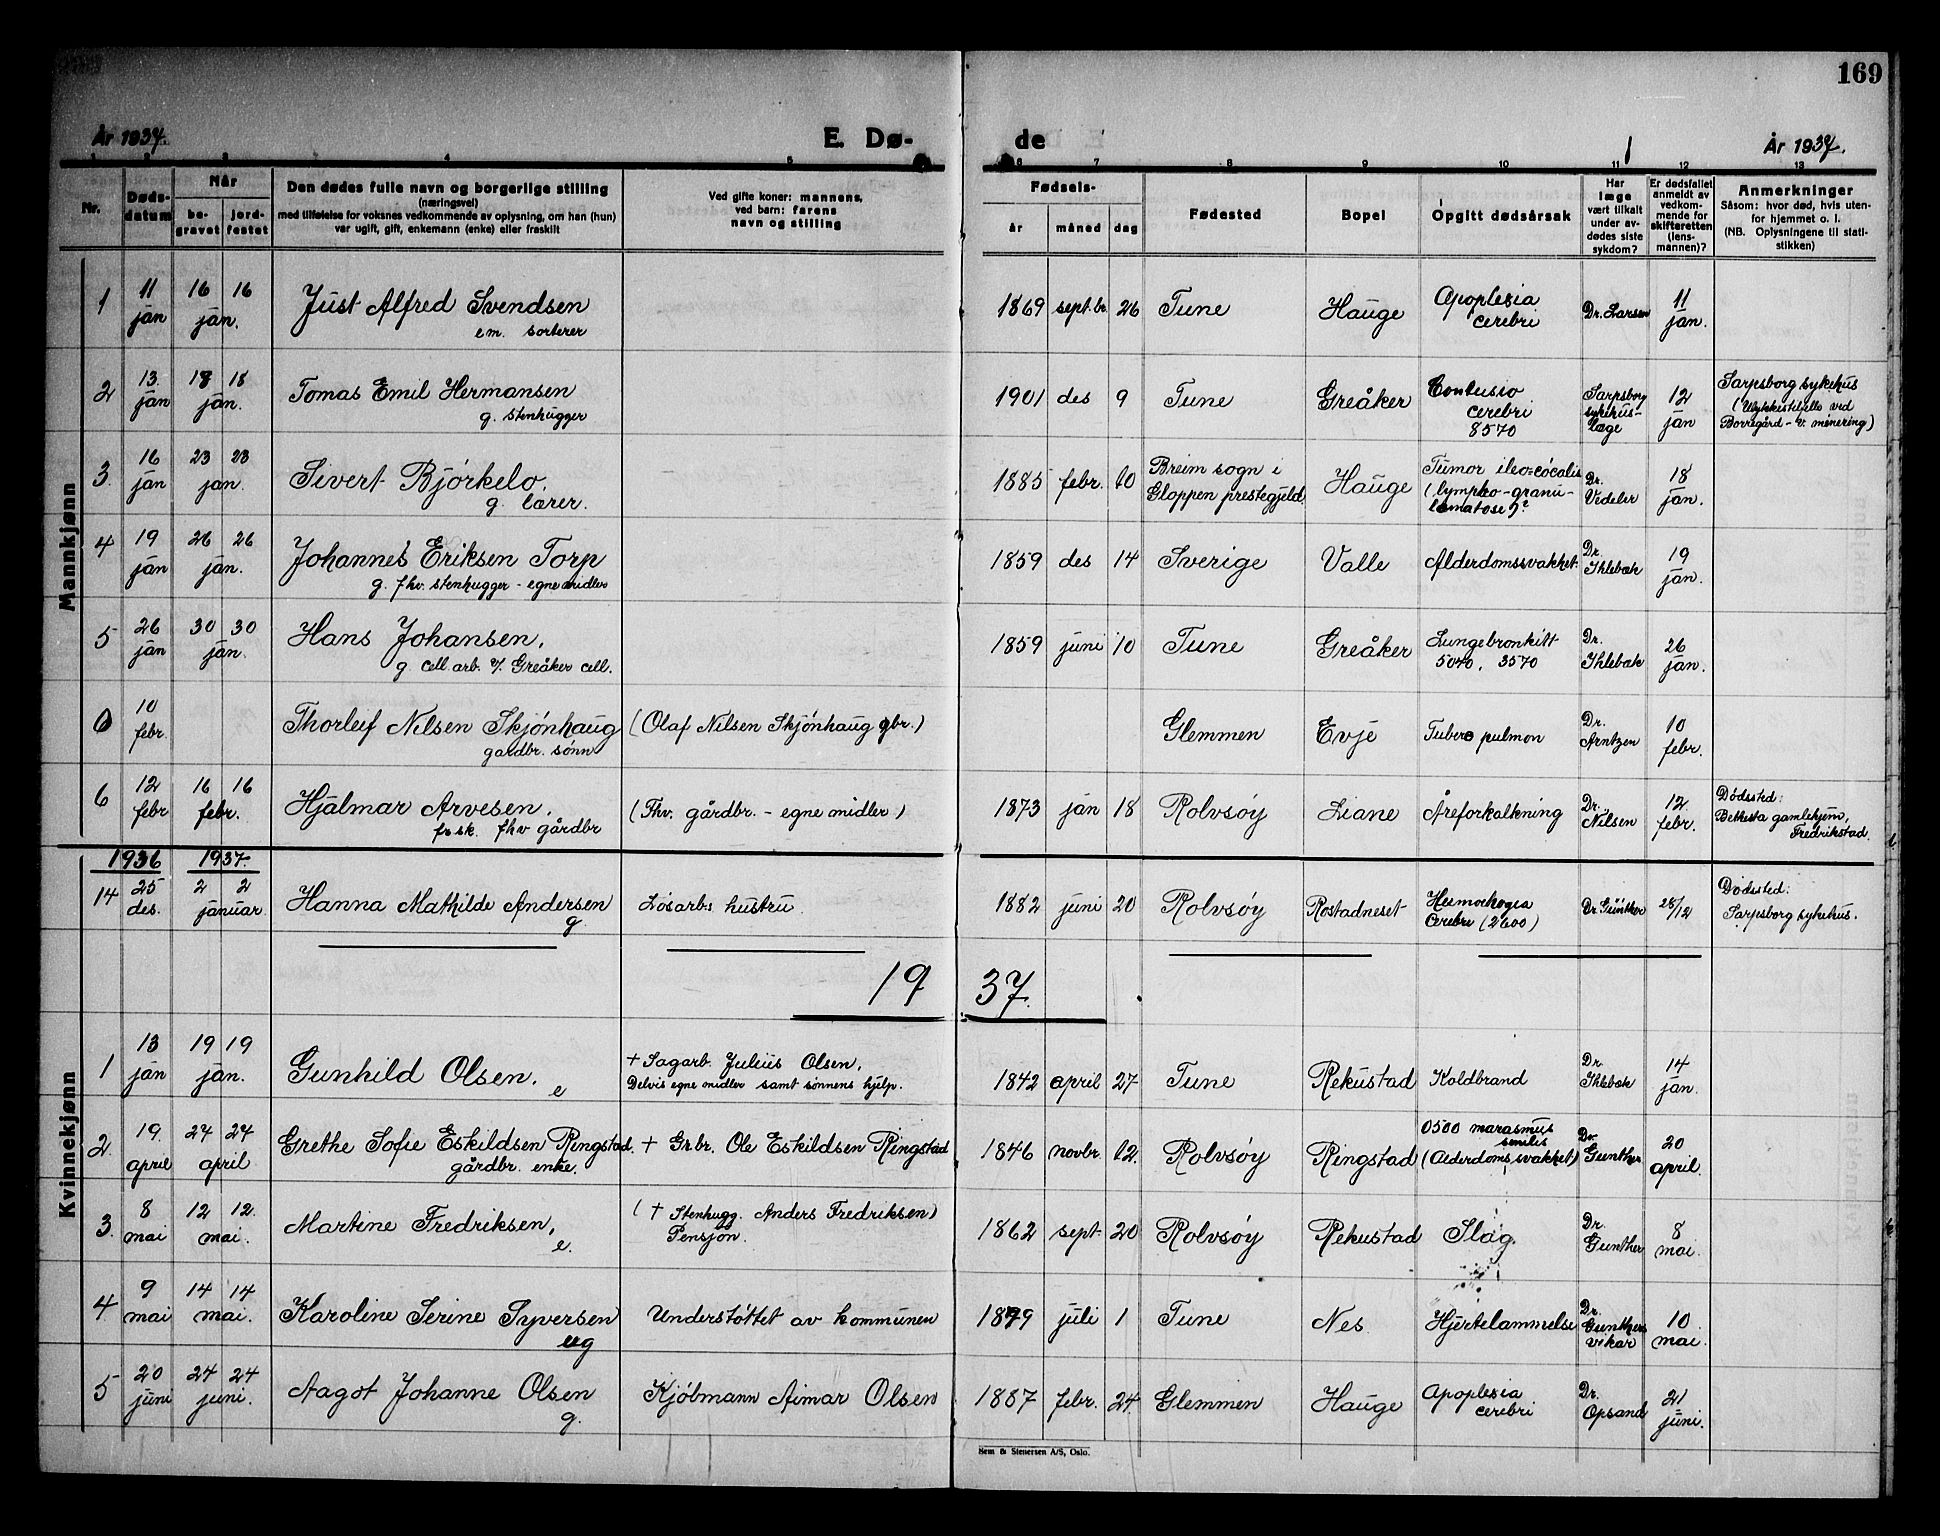 169
År 1937.
E. Dø-
de
År 1937.
Nr.
Døds-
datum
Når
be-
gravet
jord-
festet
Den dødes fulle navn og borgerlige stilling
(næringsvei)
med tilføielse for voksnes vedkommende av oplysning, om han (hun)
var ugift, gift, enkemann (enke) eller fraskilt
Ved gifte koner: mannens,
ved barn: farens
navn og stilling
Fødsels-
år
måned
dag
Fødested
Bopel
Opgitt dødsårsak
Har
læge
vært tilkalt
under av-
dødes siste
sykdom?
Er dødsfallet
anmeldt av
vedkom-
mende for
skifteretten
(lens-
mannen)?
Anmerkninger
Såsom: hvor død, hvis uten-
for hjemmet o. l.
(NB. Oplysningene til stati-
stikken)
Mannkjønn
1 11 jan 16 16 jan. Just Alfred Svendsen
em. sorterer
1869 sept.br. 26 Tune Hauge Apoplexia
cerebri
Dr. Larsen 11 jan.
2 13. jan 18 18 jan. Tomas Emil Hermansen
g. stenhugger
1901 des 9 Tune Greåker Contusio
cerebri
8570
Sarpsborg
sykehus-
læge
12 jan
Sarpsborg sykehus
(Ulykkestilfelle ved
Borregård - v. minering)
3. 16 jan 23 23 jan. Sivert Bjørkelo.
g. lærer.
1885 febr. 10 Breim sogn i
Gloppen prestegjeld
Hauge
Tumor ileo-cöcalis
(lympho-granu-
lomatose)?
Dr.
Vedeler
18 jan.
4 19 jan 26 26 jan. Johannes Eriksen Torp
g. fhv. stenhugger - egne midler
1859 des 14 Sverige Valle Alderdomssvakket.
Dr.
Ihlebæk
19 jan.
5 26 jan 30 30 jan. Hans Johansen,
g. cell. arb. v/ Greåker cell.
1859 juni 10 Tune Greåker Lungebronkitt
5070, 3570
Dr.
Ihlebæk
26 jan.
0 10 febr. Thorleif Nilsen Skjønhaug
gardbr. sønn
(Olaf Nilsen Skjønhaug gbr.)
Glemmen Evje Tuberc pulmon
Dr.
Arntzen
10 febr.
6 12 febr 16 16 febr. Hjalmar Arvesen,
frsk. fhv gårdbr
(Fhv. gårdbr. - egne midler)
1873 jan 18 Rolvsøy Liane Åreforkalkning
Dr.
Nilsen
12. febr.
Dødssted:
Betesta gamlehjem,
Fredrikstad.
1936 1937.
14 25 des. 2 2 januar. Hanna Mathilde Andersen
g
Løsarb.s hustru
1882 juni 20 Rolvsøy Rostadneset
Hemorhagia
Cerebri (2600)
Dr. Günther 28/12
Dødssted:
Sarpsborg sykehus.
19 37.
Kvinnekjønn
1 13 jan 19 19 jan. Gunhild Olsen.
e
+ Sagarb. Julius Olsen,
Delvis egne midler samt sønnens hjelp.
1842 april 27 Tune Rekustad Koldbrand
Dr.
Ihlebæk
14 jan.
2. 19. april 24 24 april Grethe Sofie Eskildsen Ringstad.
gårdbr. enke.
+ Gr.br. Ole Eskildsen Ringstad
1846 novbr. 12. Rolvsøy Ringstad
0500 marasmus
senilis
(Alderdomssvakket)
Dr.
Gunther
20 april.
3. 8 mai 12 12. mai. Martine Fredriksen,
e.
(+ Stenhugg. Anders Fredriksen)
Pensjon.
1862 sept. 20 Rolvsøy Rekustad Slag.
Dr.
Gunther
8 mai.
4 9 mai 14 14 mai. Karoline Serine Syversen
ug
Understøttet av kommunen
1879 juli 1 Tune Nes Hjertelammelse
Dr.
Gunthers
vikar
10 mai.
5 20 juni 24 24 juni. Aagot Johanne Olsen
g.
Kjøbmann Aimar Olsen
1887 febr. 24. Glemmen Hauge Apoplexia
cerebri
Dr.
Opsand
21 juni.
Sem & Stenersen A/S, Oslo.